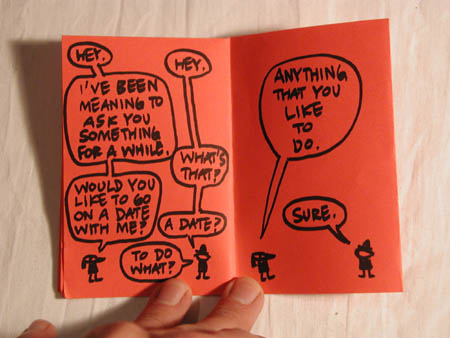 HEY.
HEY.
I'VE BEEN
MEANING TO
ASK YOU
SOMETHING
FOR A WHILE.
WHAT'S
THAT?
WOULD YOU
LIKE TO GO
ON A DATE
WITH ME?
A DATE?
TO DO
WHAT?
ANYTHING
THAT YOU
LIKE
TO
DO.
SURE.